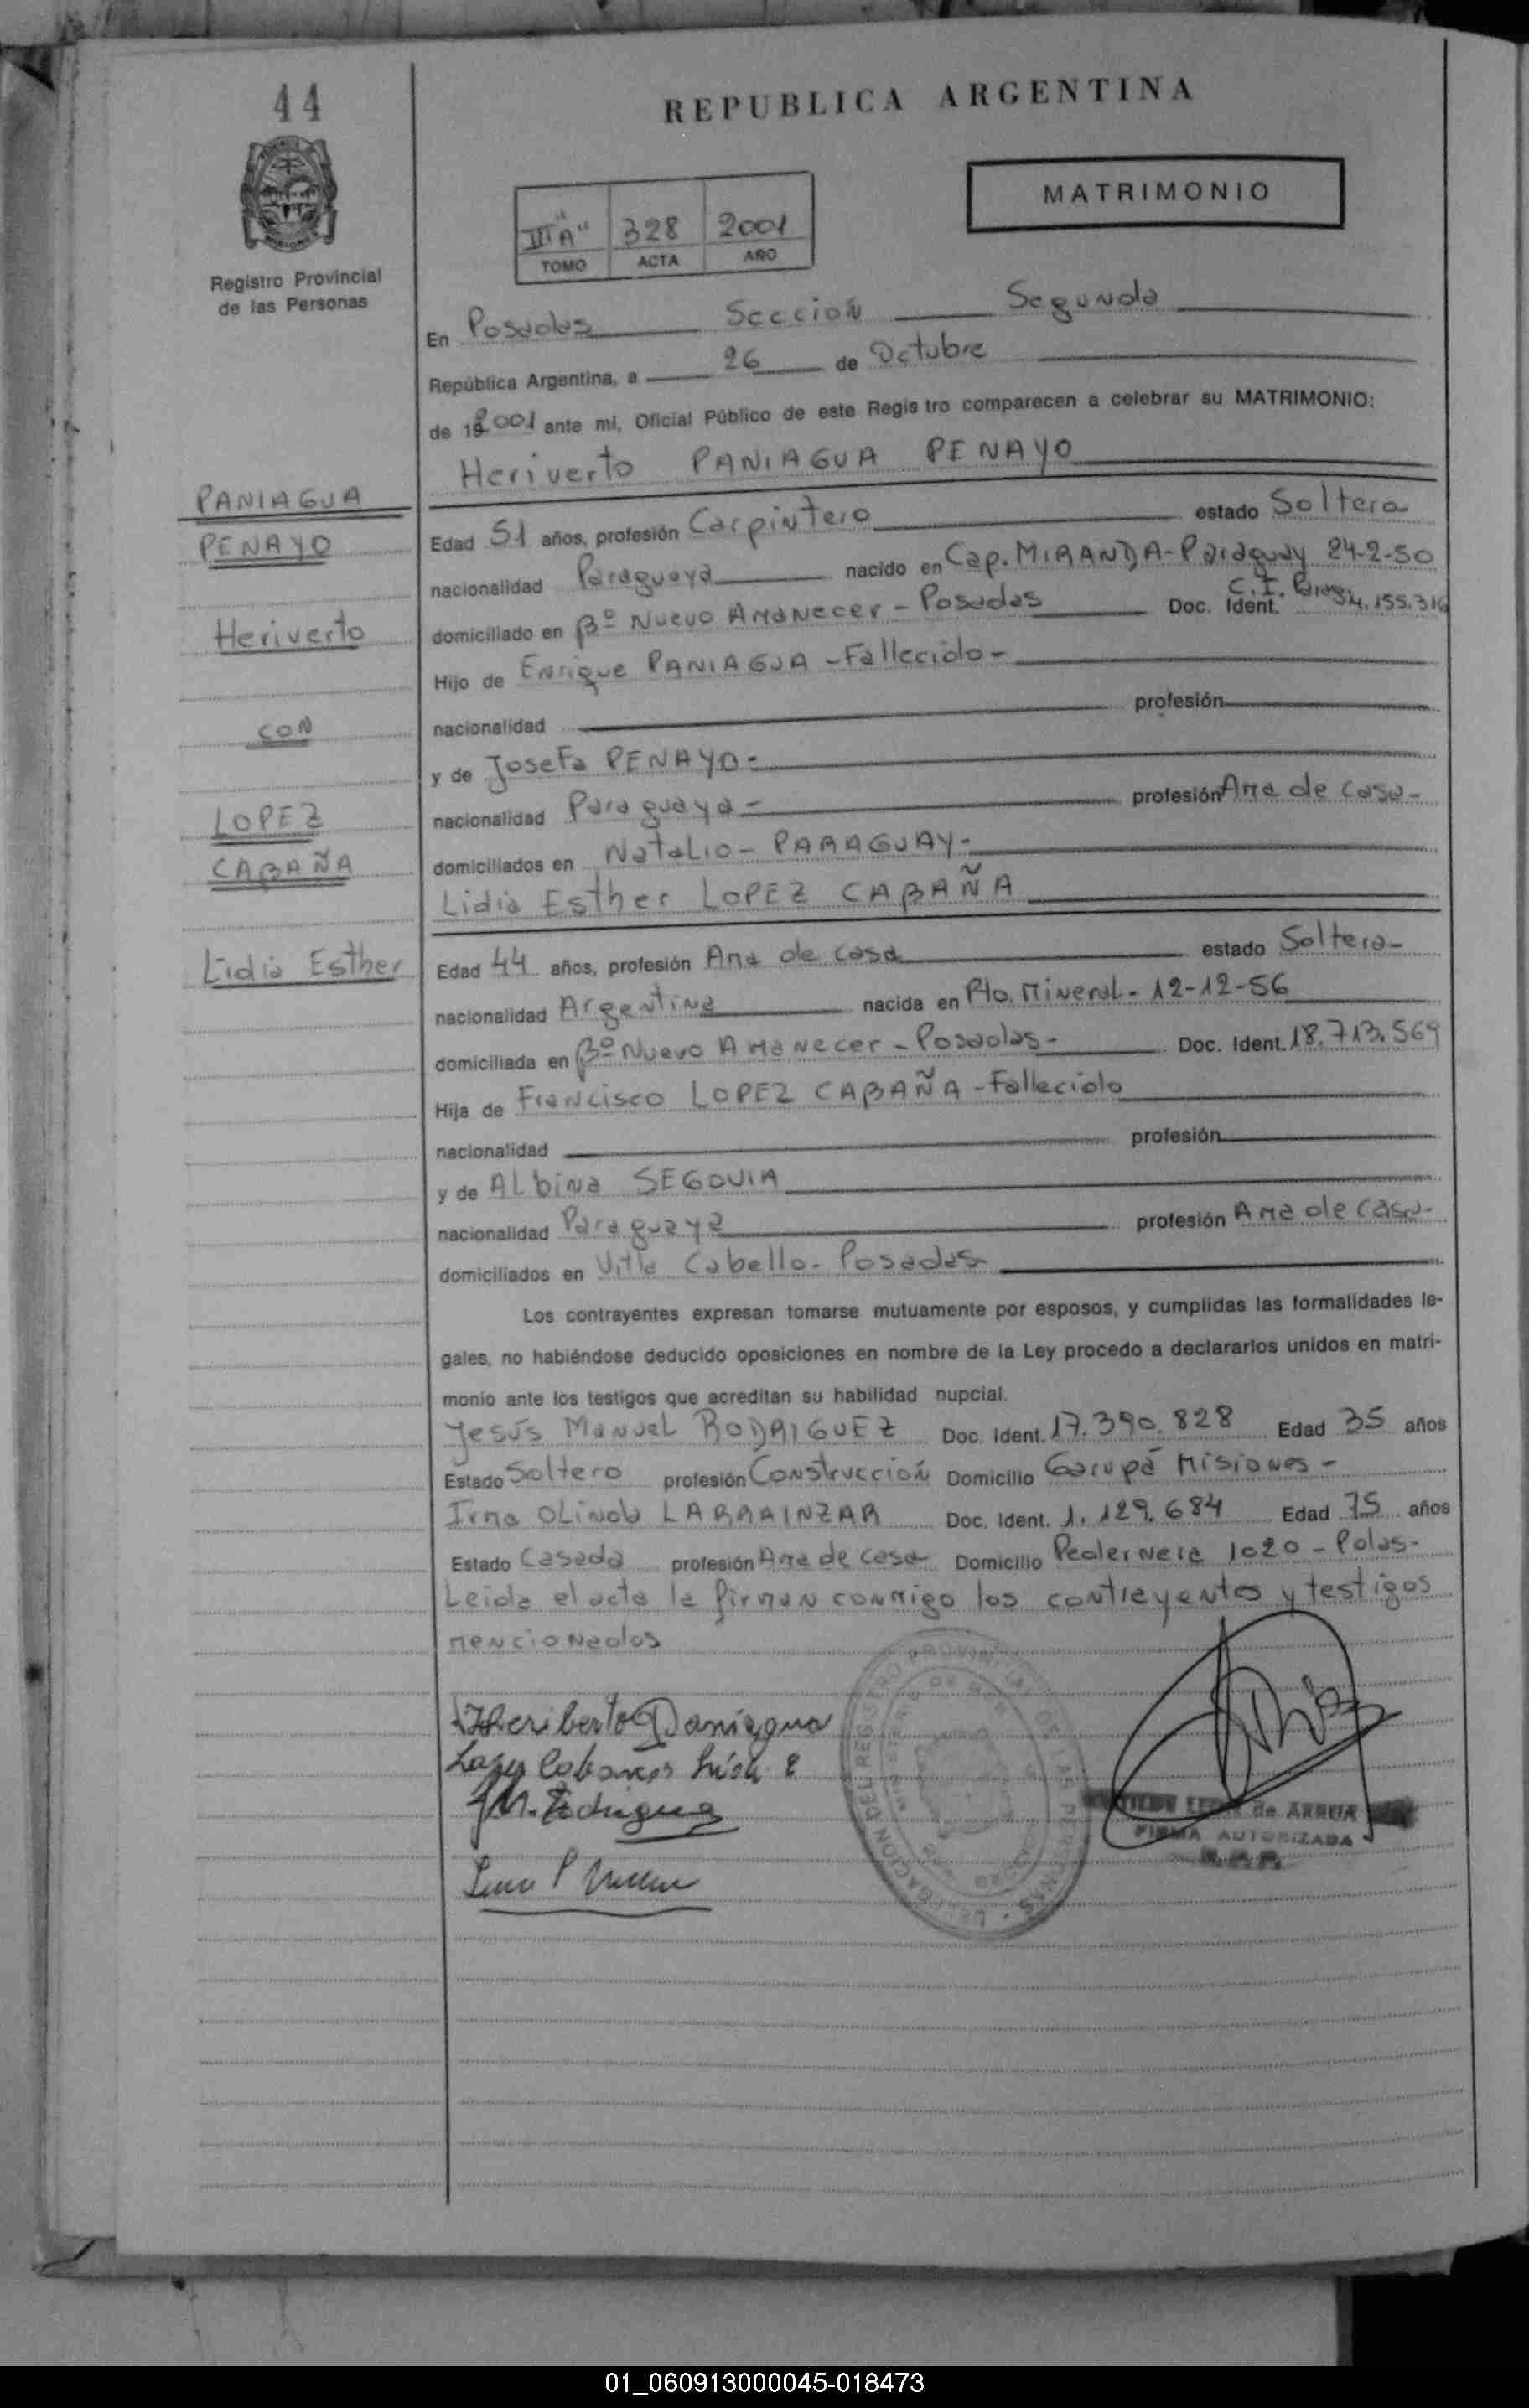 44
REPUBLICA ARGENTINA
MATRIMONIO
III "A" 328 2001
TOMO ACTA AÑO
Registro Provincial
de las Personas
En Posadas Sección Segunda
República Argentina, a 26 de Octubre
de 2001 ante mi, Oficial Público de este Registro comparecen a celebrar su MATRIMONIO:
Heriverto PANIAGUA PENAYO
PANIAGUA
PENAYO
Heriverto
CON
LOPEZ
CABAÑA
Lidia Esther
Edad 51 años, profesión Carpintero estado Soltero
nacionalidad Paraguaya nacido en Cap. MIRANDA-Paraguay 24-2-50
domiciliado en Bº Nuevo Amanecer - Posadas Doc. Ident. C.I. 155.316
Hijo de Enrique PANIAGUA - Fallecido -
nacionalidad profesión
y de Josefa PENAYO -
nacionalidad Paraguaya - profesión Ama de casa -
domiciliados en Natalio - PARAGUAY -
Lidia Esther LOPEZ CABAÑA
Edad 44 años, profesión Ama de casa estado Soltera -
nacionalidad Argentina nacida en Pto. Mineral - 12-12-56
domiciliada en Bº Nuevo Amanecer - Posadas - Doc. Ident. 18.713.569
Hija de Francisco LOPEZ CABAÑA - Fallecido
nacionalidad profesión
y de Albina SEGOVIA
nacionalidad Paraguaya profesión Ama de casa -
domiciliados en Villa Cabello - Posadas
Los contrayentes expresan tomarse mutuamente por esposos, y cumplidas las formalidades le-
gales, no habiéndose deducido oposiciones en nombre de la Ley procedo a declararlos unidos en matri-
monio ante los testigos que acreditan su habilidad nupcial.
Jesús Manuel RODRIGUEZ Doc. Ident. 17.390.828 Edad 35 años
Estado Soltero profesión Construcción Domicilio Garupá Misiones -
Irma Olinda LARRAINZAR Doc. Ident. 1.129.684 Edad 75 años
Estado Casada profesión Ama de casa Domicilio Pedernera 1020 - Pdas -
Leida el acta la firman conmigo los contrayentes y testigos
mencionados
Heriberto Paniagua
J M. Rodriguez
de ARRUA
FIRMA AUTORIZADA
01_060913000045-018473